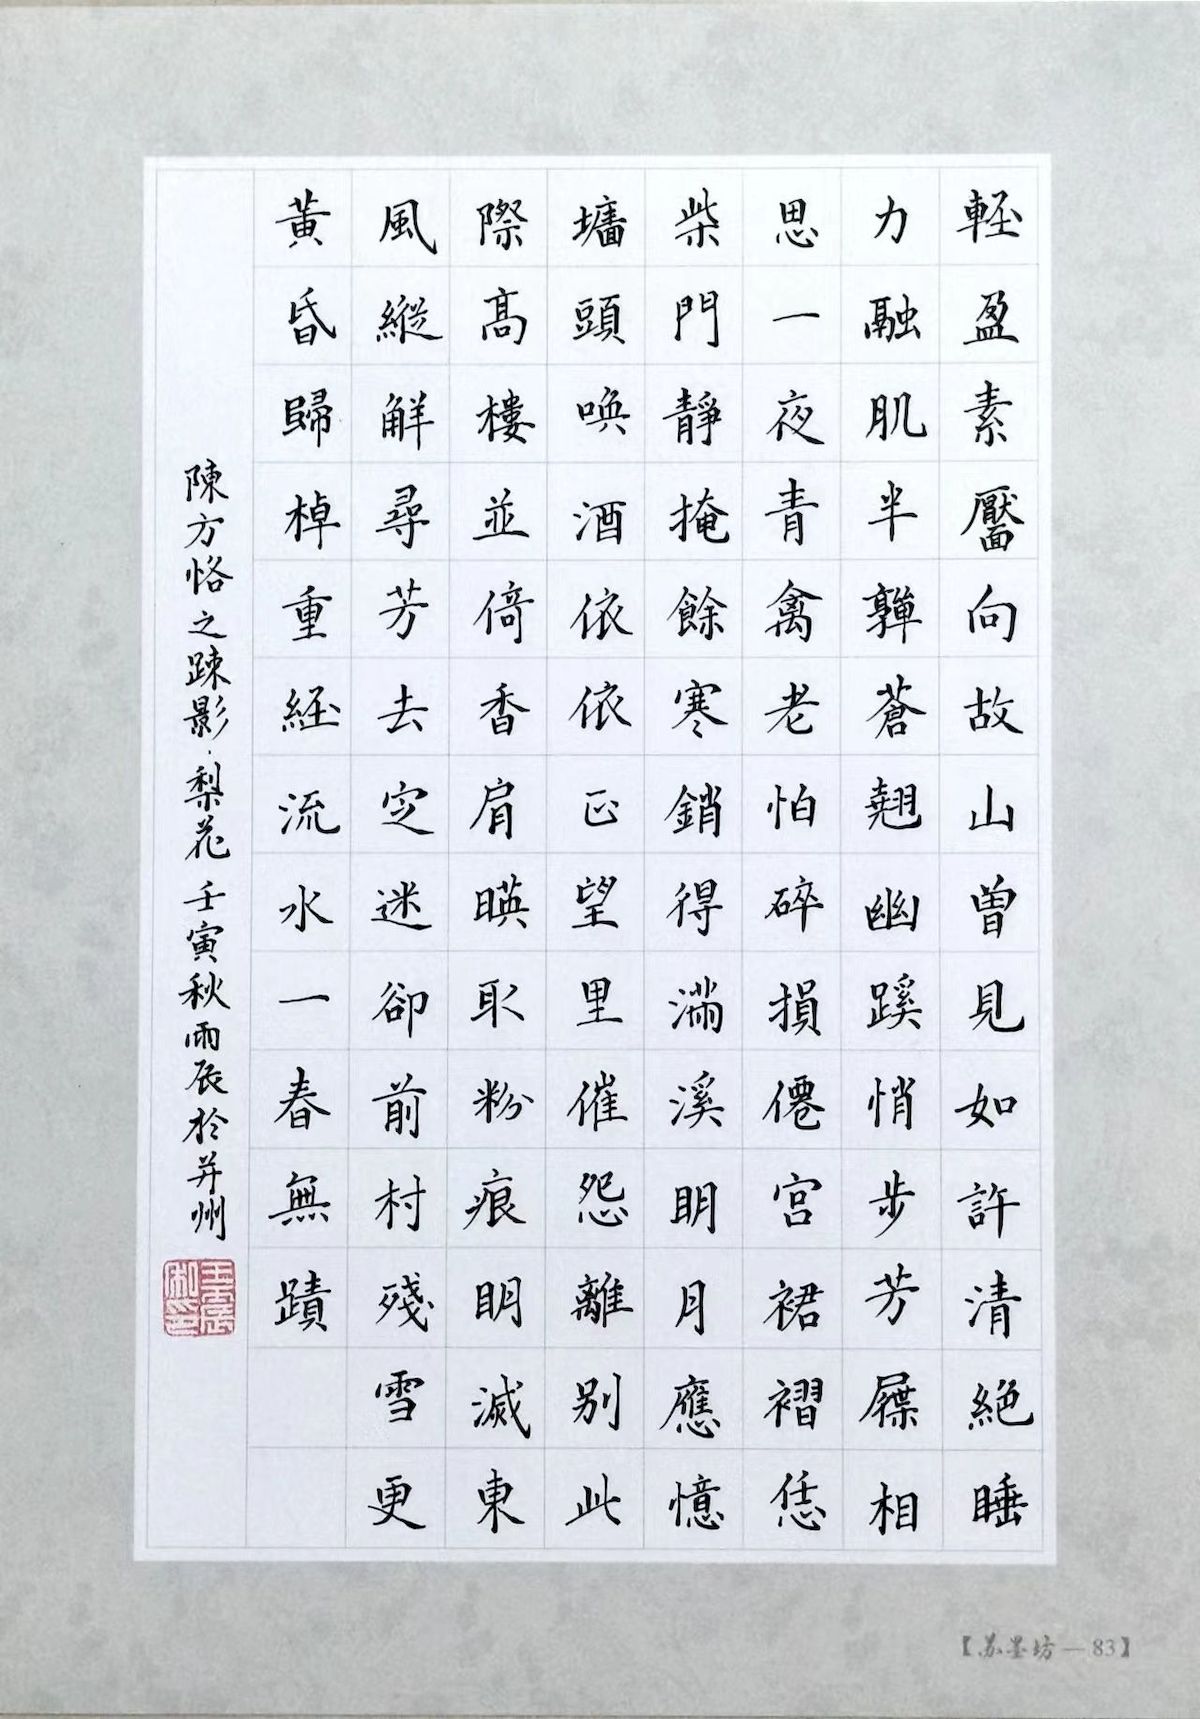 輕盈素靨向故山曾見如許清絕睡
力融肌半嚲蒼翹幽蹊悄步芳屧相
思一夜青禽老怕碎損僊宮裙褶恁
柴門靜掩餘寒銷得滿溪明月應憶
墻頭喚酒依依正望里催怨離別此
際高樓並倚香肩暎取粉痕明滅東
風縱解尋芳去定迷卻前村殘雪更
黃昏歸棹重經流水一春無蹟
陳方恪之疎影·梨花 壬寅秋雨辰於并州
【苏墨坊—83】